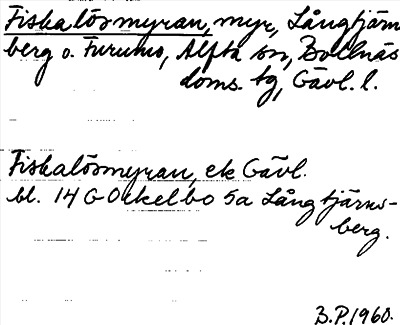 Fiskalösmyran, myr, Långtjärns-
berg o. Furumo, Alfta sn, Bollnäs
doms. tg, Gävl. l.
Fiskalösmyran, ek Gävl.
bl. 14 G Ockelbo 5a Långtjärns-
berg.
B.P. 1960.